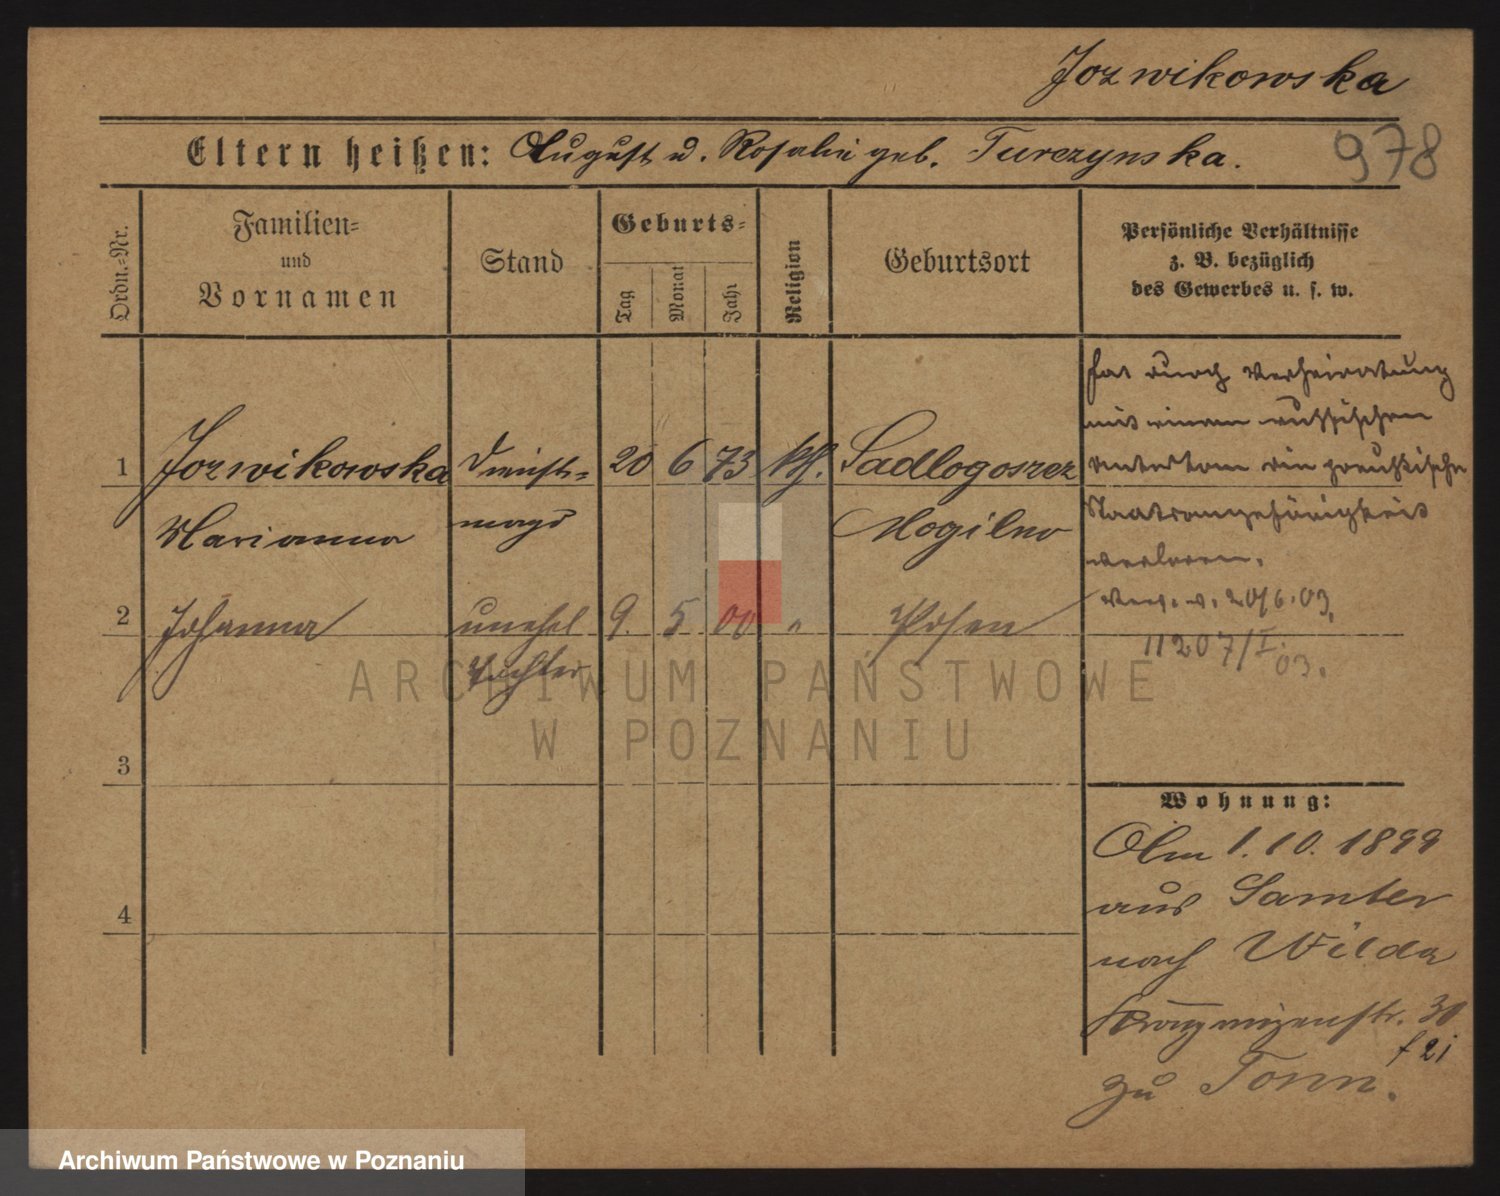 Jozwikowska
Eltern heißen: August u. Rosalie geb. Turczynska.
978
Ordn.-Nr.
Familien-
und
Vornamen
Stand
Geburts-
Tag
Monat
Jahr
Religion
Geburtsort
Persönliche Verhältnisse
z. B. bezüglich
des Gewerbes u. s. w.
hat durch Verheiratung
mit einem russischen
Untertan die preußische
Staatsangehörigkeit
verloren.
v. 20/6.03.
11207/I.03.
1
Jozwikowska
Marianna
Dienst-
magd
20 6 73 kth.
Sadlogoszcz
Mogilno
2
Johanna
unehel
Tochter
9. 5 00 "
Posen
3
4
Wohnung:
Am 1.10.1899
aus Samter
nach Wilda
Kronprinzenstr. 30
zu Tonn.
ARCHIWUM PAŃSTWOWE
W POZNANIU
Archiwum Państwowe w Poznaniu